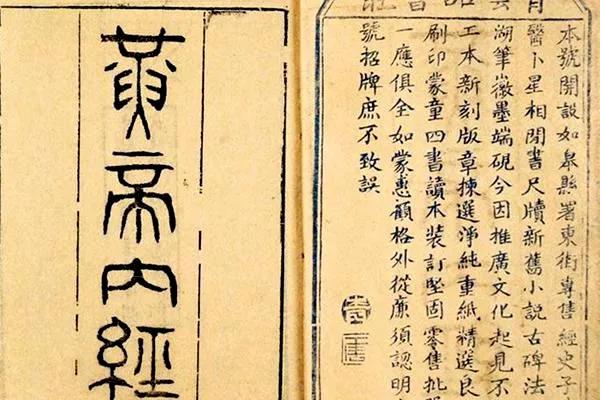 黃帝內經
本號開設如皋縣署東街專售經史子
醫卜星相閒書尺牘新舊小說古碑法
湖筆徽墨端硯今因推廣文化起見不
工本新刻版章揀選淨純重紙精選良
刷印蒙童四書讀本裝訂堅固零售批
一應俱全如蒙惠顧格外從廉須認明
號招牌庶不致誤